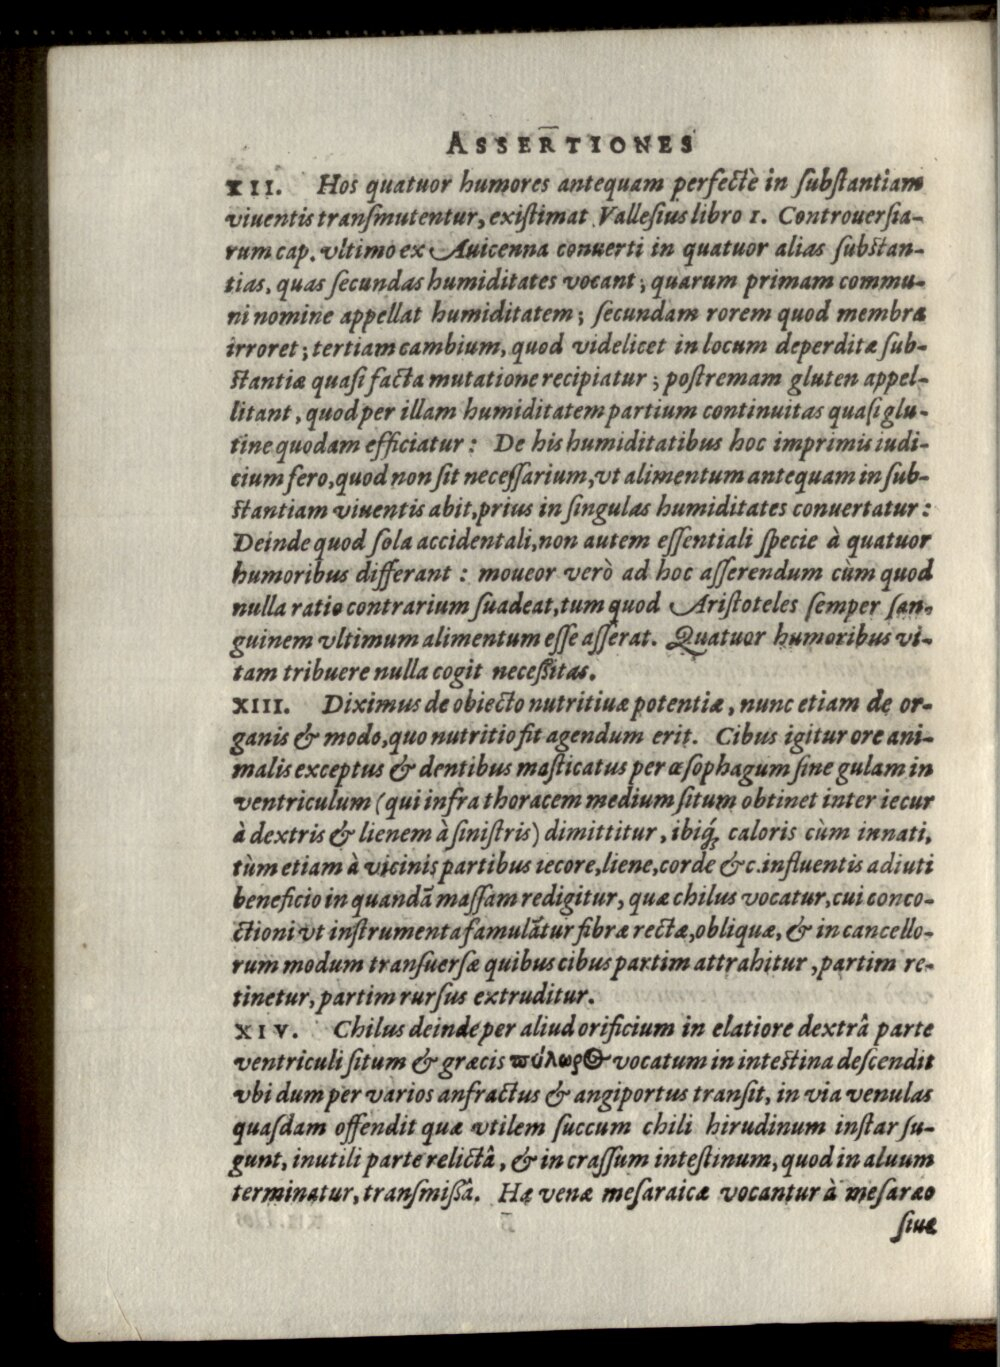 ASSERTIONES
XII. Hos quatuor humores antequam perfectè in substantiam
viuentis transmutentur, existimat Vallesius libro 1. Controuersia-
rum cap. vltimo ex Auicenna conuerti in quatuor alias substan-
tias, quas secundas humiditates vocant; quarum primam commu-
ni nomine appellat humiditatem; secundam rorem quod membra
irroret; tertiam cambium, quod videlicet in locum deperditæ sub-
stantiæ quasi facta mutatione recipiatur; postremam gluten appel-
litant, quod per illam humiditatem partium continuitas quasi glu-
tine quodam efficiatur: De his humiditatibus hoc imprimis iudi-
cium fero, quod non sit necessarium, vt alimentum antequam in sub-
stantiam viuentis abit, prius in singulas humiditates conuertatur:
Deinde quod sola accidentali, non autem essentiali specie à quatuor
humoribus differant: moueor verò ad hoc asserendum cùm quod
nulla ratio contrarium suadeat, tum quod Aristoteles semper san-
guinem vltimum alimentum esse asserat. Quatuor humoribus vi-
tam tribuere nulla cogit necessitas.
XIII. Diximus de obiecto nutritiuæ potentiæ, nunc etiam de or-
ganis & modo, quo nutritio fit agendum erit. Cibus igitur ore ani-
malis exceptus & dentibus masticatus per œsophagum siue gulam in
ventriculum (qui infra thoracem medium situm obtinet inter iecur
à dextris & lienem à sinistris) dimittitur, ibiq́; caloris cùm innati,
tùm etiam à vicinis partibus iecore, liene, corde &c. influentis adiuti
beneficio in quandã massam redigitur, quæ chilus vocatur, cui conco-
ctioni vt instrumenta famulãtur fibræ rectæ, obliquæ, & in cancello-
rum modum transuersæ quibus cibus partim attrahitur, partim re-
tinetur, partim rursus extruditur.
XIV. Chilus deinde per aliud orificium in elatiore dextrâ parte
ventriculi situm & græcis πύλωρος vocatum in intestina descendit
vbi dum per varios anfractus & angiportus transit, in via venulas
quasdam offendit quæ vtilem succum chili hirudinum instar su-
gunt, inutili parte relictâ, & in crassum intestinum, quod in aluum
terminatur, transmissâ. Hæ venæ mesaraicæ vocantur à mesaræo
siue